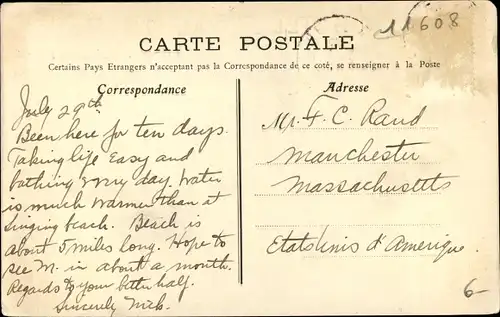 11608
CARTE POSTALE
Certains Pays Etrangers n'acceptant pas la Correspondance de ce coté, se renseigner à la Poste
Correspondance
July 29th
Been here for ten days.
Taking life Easy and
bathing every day. Water
is much warmer than at
Singing beach. Beach is
about 5 miles long. Hope to
see M. in about a month.
Regards to your better half.
Sincerely Nick.
Adresse
Mr. F. C. Rand
Manchester
Massachusetts
Etats Unis d'Amerique.
6-